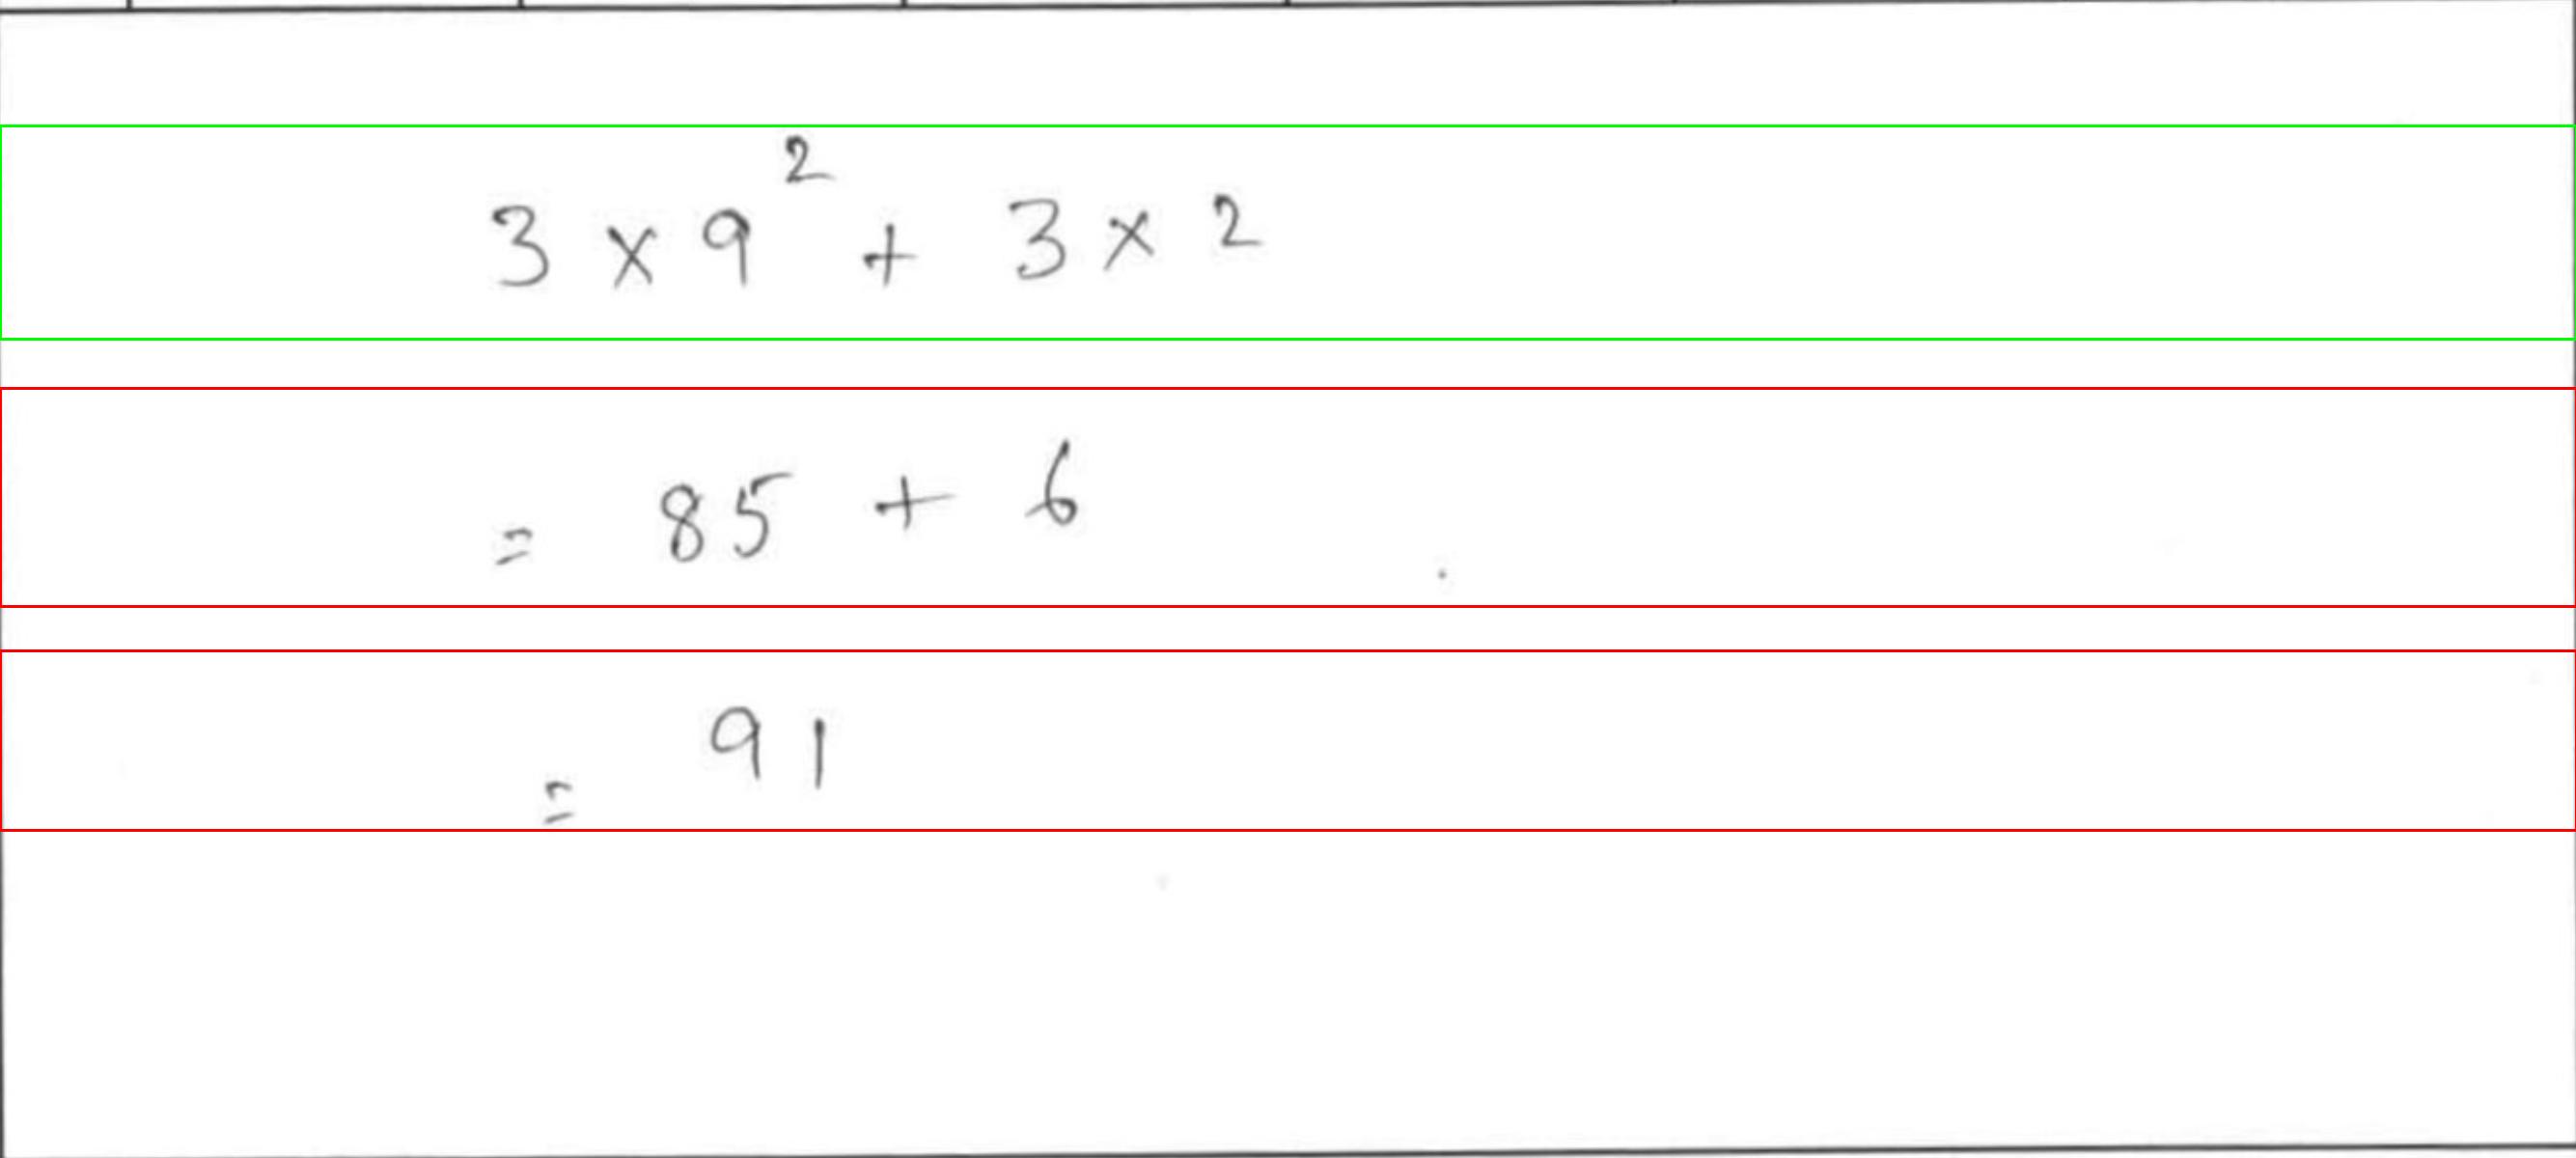 3 × 9² + 3 × 2
= 85 + 6
= 91